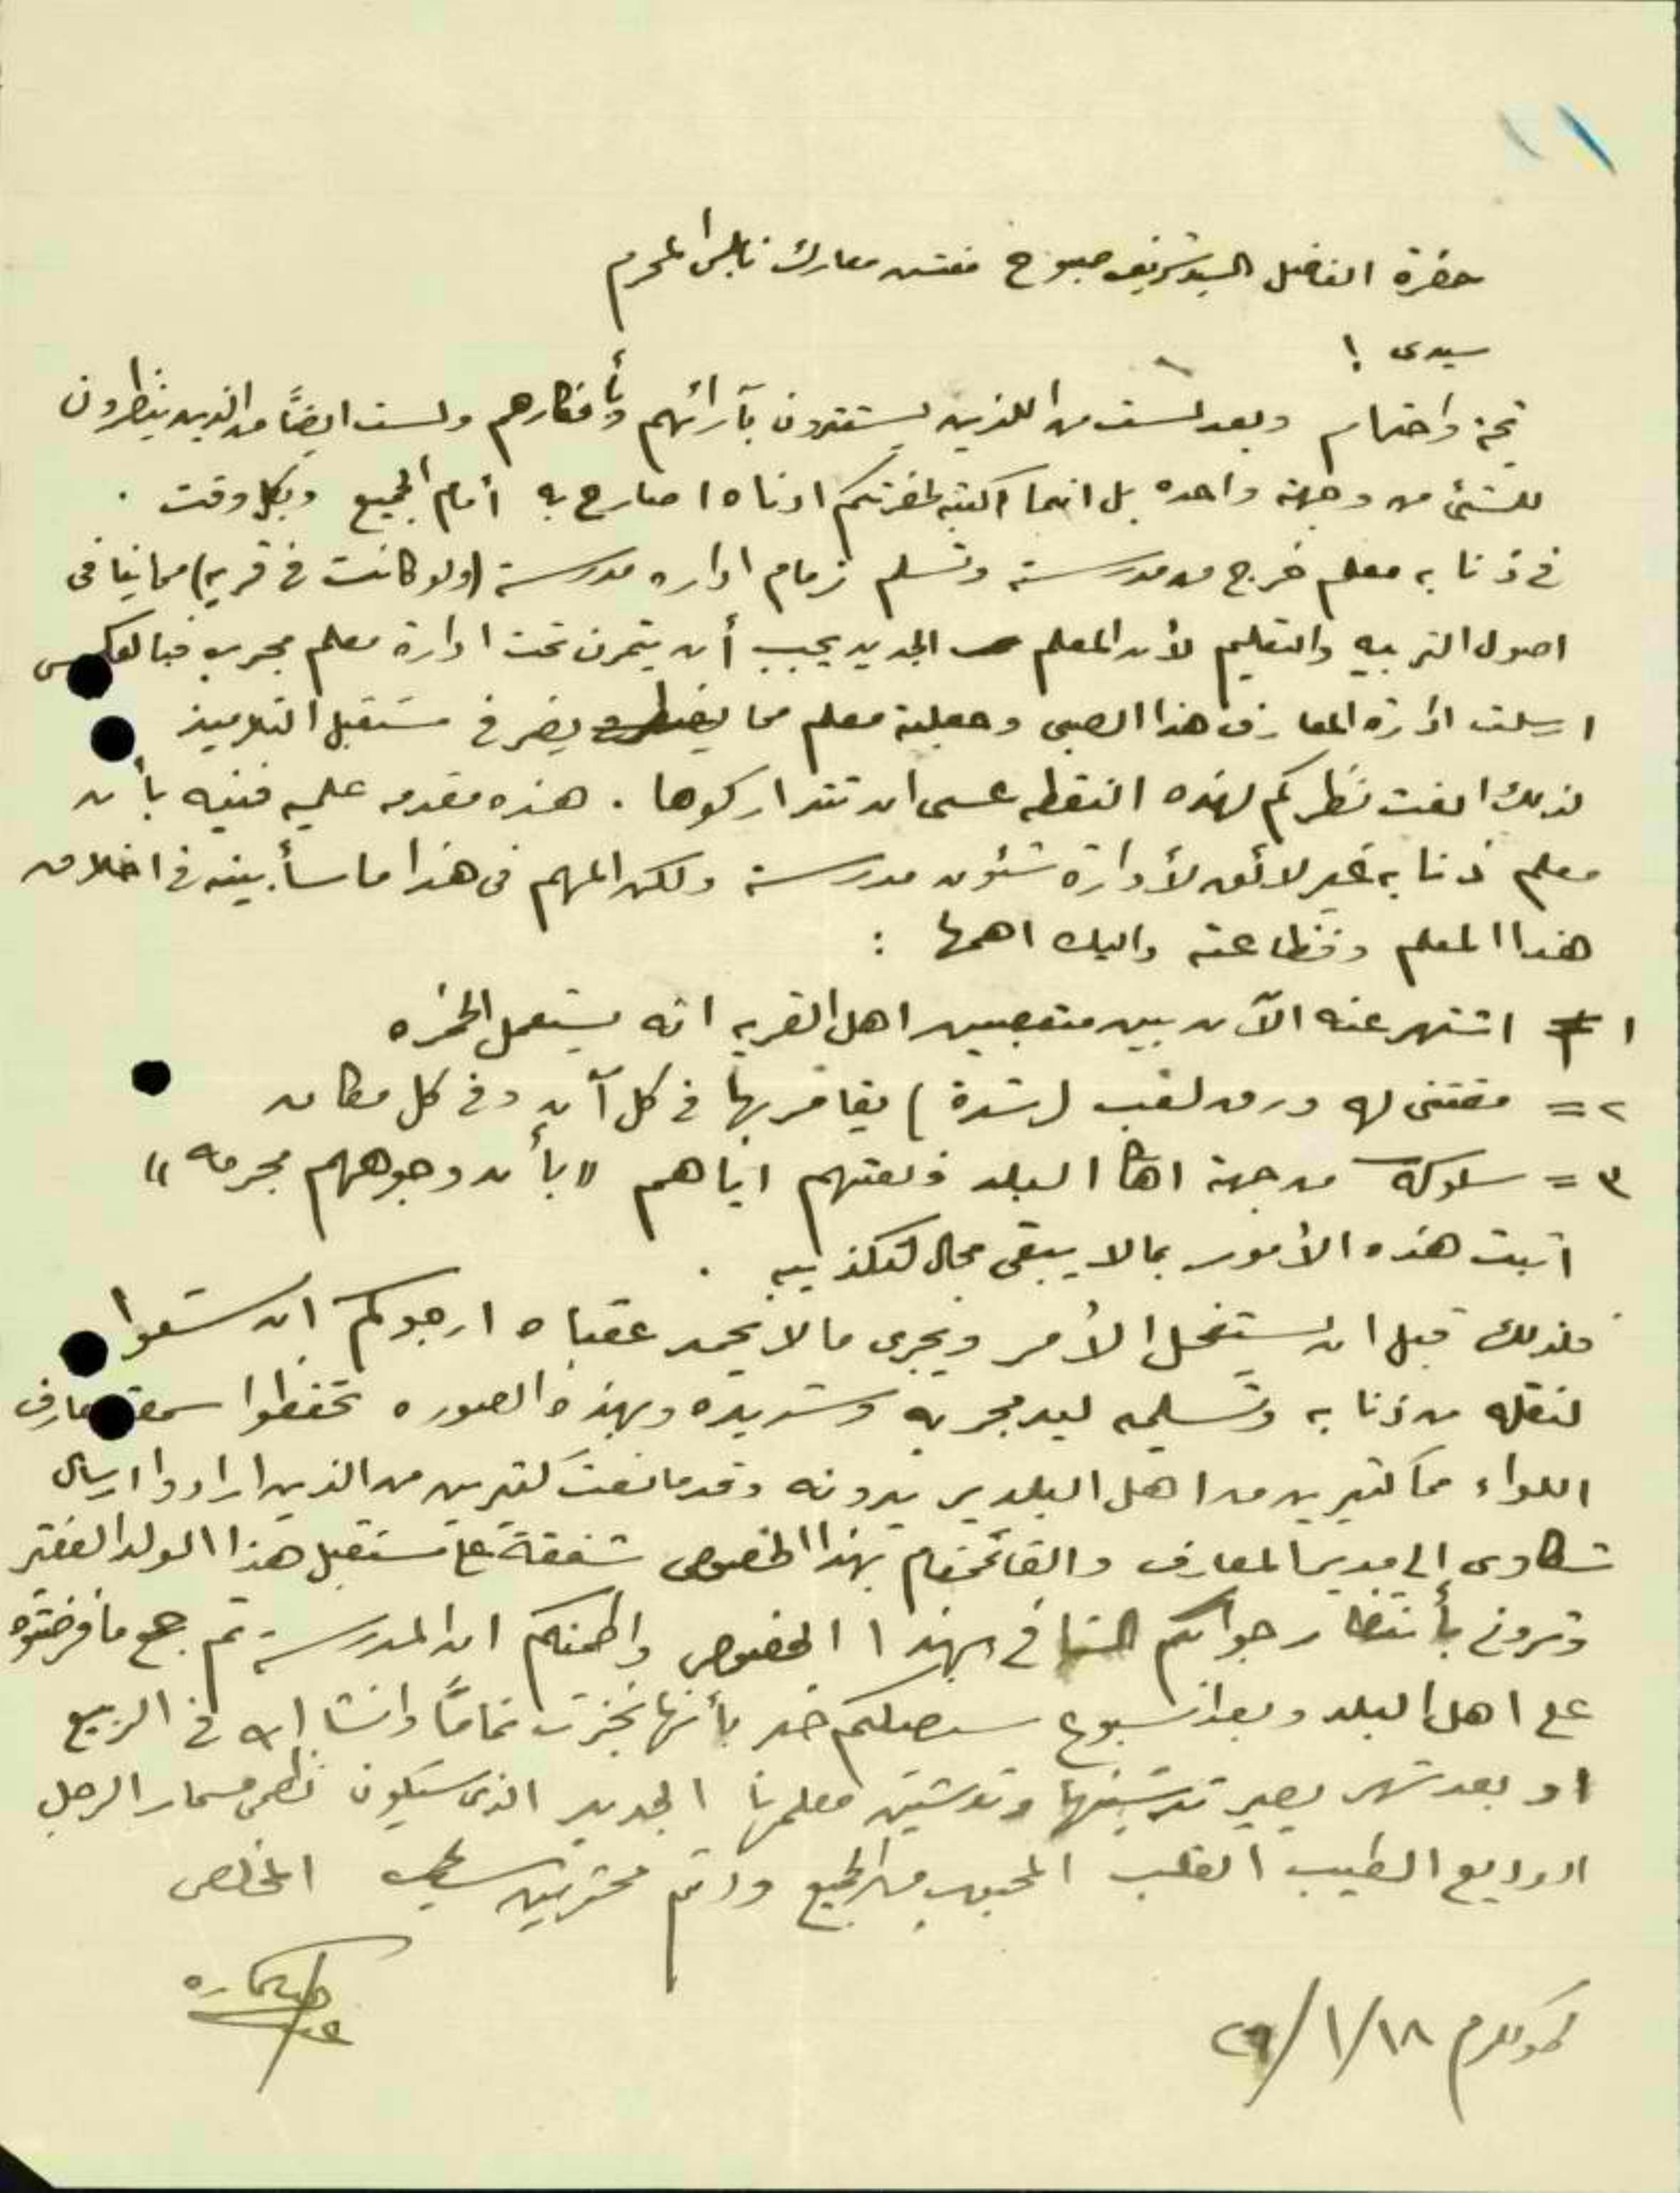 حضرة الفاضل السيد شريف صبوح مفتش معارف نابلس المحترم
سيدى !
تحية واحتراما وبعد لست من اللذين يستقتدون بآرائهم وبأفكارهم ولست ايضاً من الذين ينظرون
للشئ من وجهة واحده بل انما اكتبه لحضرتكم ادناه اصارح به أمام الجميع وبكل وقت .
في ذنابه معلم خرج من مدرسته وتسلم زمام اداره مدرسة (ولو كانت في قريه) مما ينافى
اصول التربيه والتعليم لأن المعلم الجديد يجب أن يتمرن تحت ادارة معلم مجرب فبالعكس
ارسلت ادارة المعارف هذا الصبى وجعلته معلم مما يضر في مستقبل التلاميذ
لذلك الفت نظركم لهذه النقطه عسى ان تتداركوها . هذه مقدمه علميه فنيه بأن
معلم ذنابه غير لائق لأدارة شئون مدرسة ولكن المهم فى هذا ما سأبينه في اخلاق
هذا المعلم وفظاعته واليك اهمها :
١ = اشتهر عنه الآن بين متعصبين اهل القريه انه يستعمل الخمره
٢ = مقتنى له ورق لعب (شدة) يقامر بها في كل آن وفي كل مكان
٣ = سلوكه من جهة اهل البلد ونعتهم اياهم "بأن وجوههم مجرمه"
اثبت هذه الأمور بما لا يبقى مجال لتكذيبه .
فلذلك قبل ان يستفحل الأمر ويجرى ما لا يحمد عقباه ارجوكم ان تسعوا
لنقله من ذنابه وتسليمه ليد مجربه وشديده وبهذه الصوره تحفظوا سمعة معارف
اللواء مما كثيرين من اهل البلد يريدونه وقد مانعت كثيرين من الذين ارادوا ارسال
شكاوى الى مدير المعارف والقائمقام بهذا الخصوص شفقة على مستقبل هذا الولد الفقير
وترونى بأنتظار جوابكم الشافي بهذا الخصوص واطمنكم ان المدرسة تم جمع ما فرضتوه
على اهل البلد وبعد اسبوع سيصلكم خبر بأنها نجزت تماماً وانشا الله في الربيع
او بعد شهر يصير تدشينها وتدشين معلمها الجديد الذى سيكون نظمى مسمار الرجل
الوديع الطيب القلب المحبوب من الجميع ودمتم محترمين سيدي المخلص
طولكرم ١٨/١/٢٩